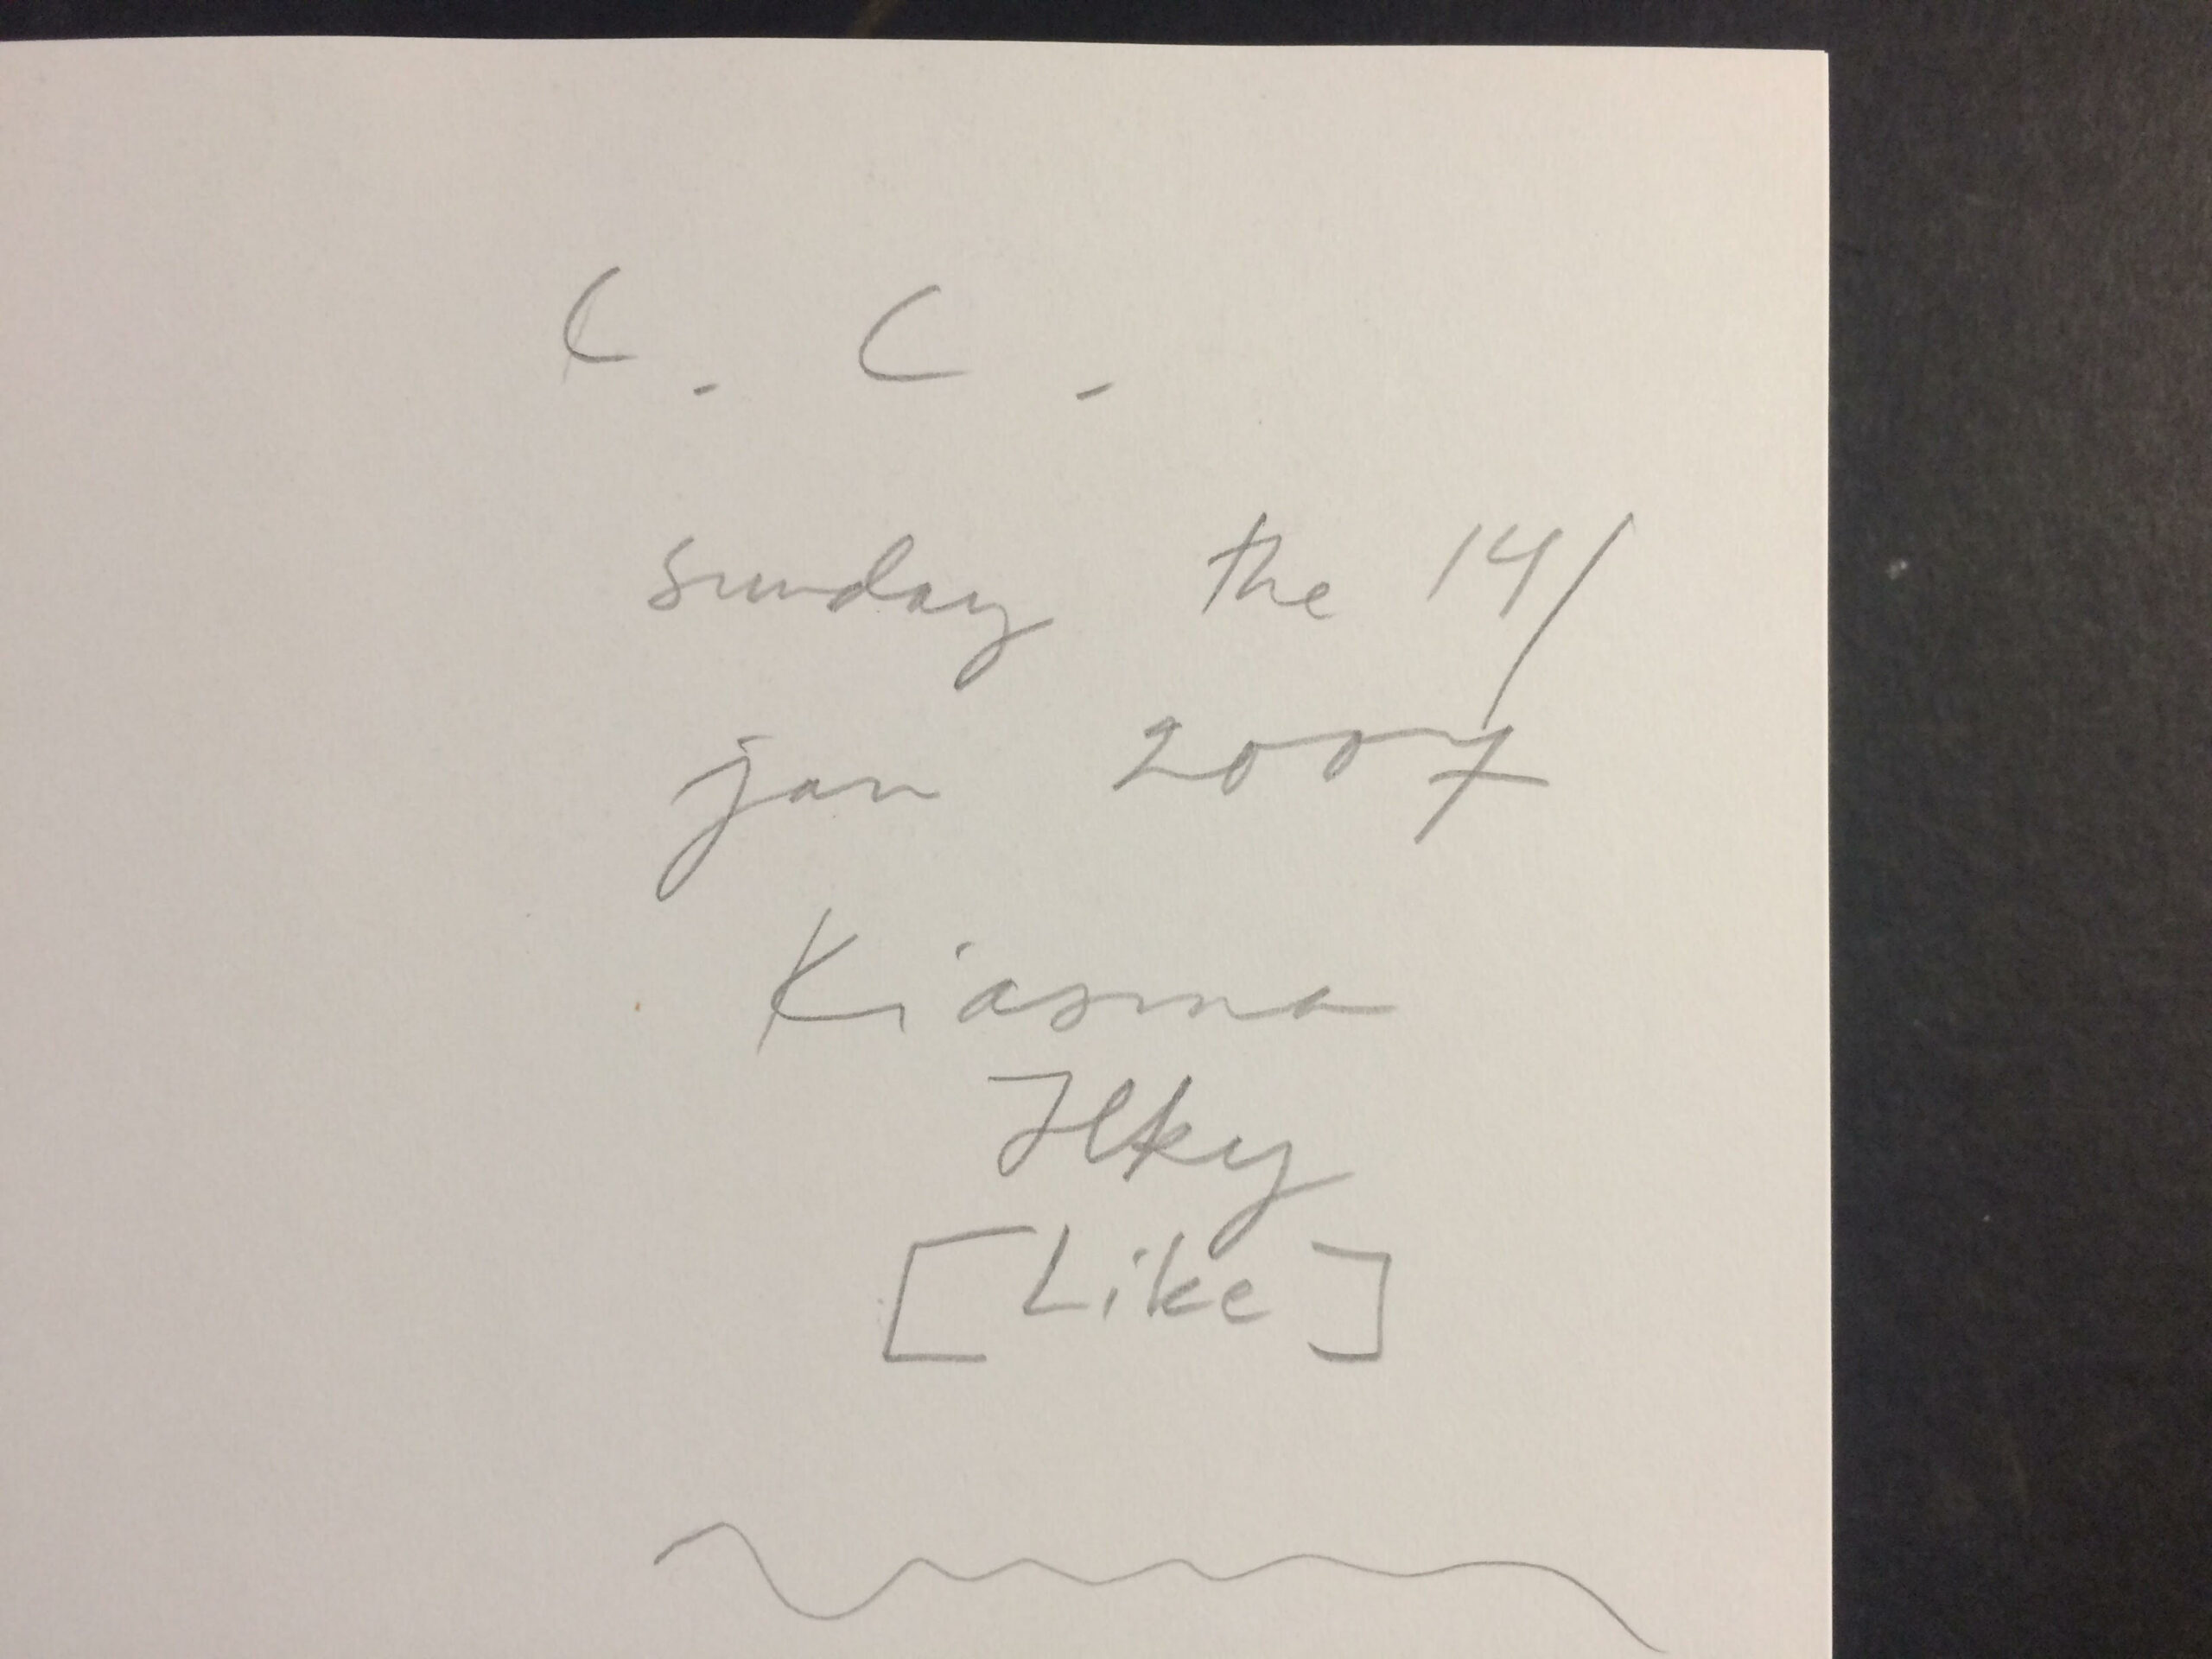 C. C.
sunday the 14/
jan 2007
Kiasma
Ilky
[Like]